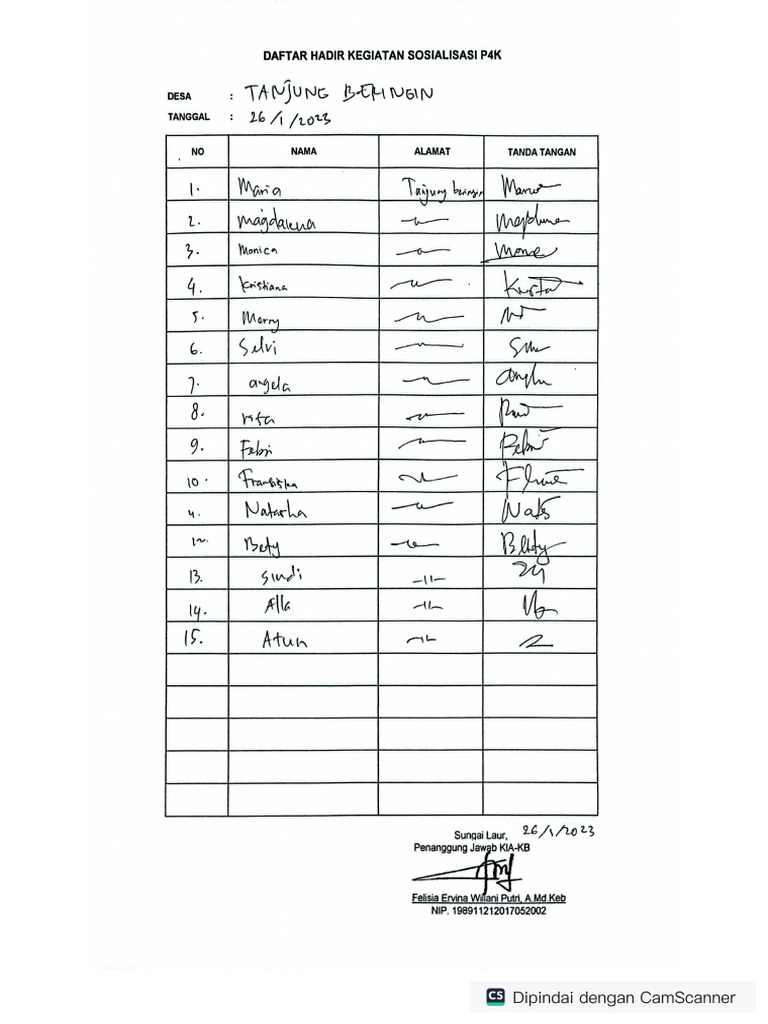 DAFTAR HADIR KEGIATAN SOSIALISASI P4K
DESA : TANJUNG BERINGIN
TANGGAL : 26/1/2023
NO NAMA ALAMAT TANDA TANGAN
1. Maria Tanjung beringin
2. Magdalena
3. Monica
4. Kristiana
5. Merry
6. Selvi
7. angela
8. rita
9. Febri
10. Fransiska
11. Natasha
12. Bety Bety
13. Sindi -11-
14. Alla -11-
15. Atun -11-
Sungai Laur, 26/1/2023
Penanggung Jawab KIA-KB
Felisia Ervina Willani Putri, A.Md.Keb
NIP. 198911212017052002
CS Dipindai dengan CamScanner